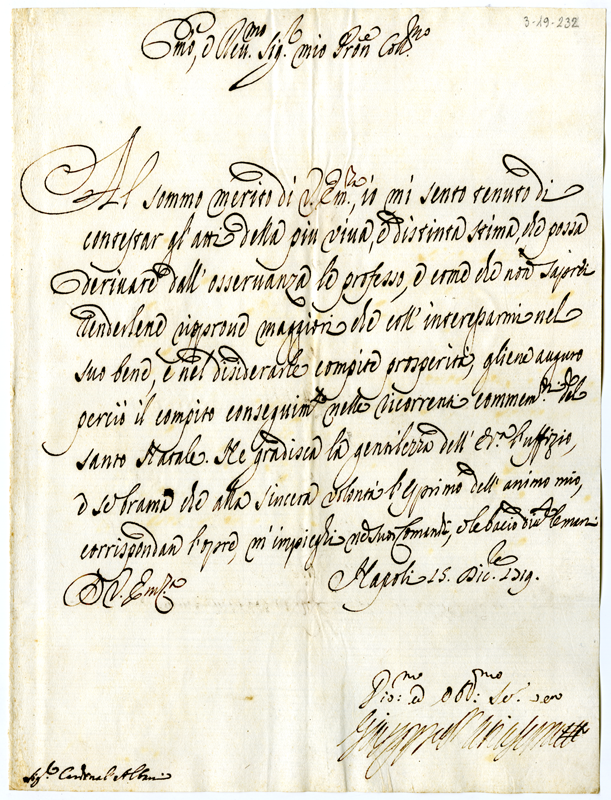 3-19-232
Em.o, e Rev.mo Sig.r mio Pron.e Coll.mo
Al sommo merito di V. Em.za, io mi sento tenuto di
contestar gl'atti della più viva, e distinta stima, che possa
derivare dall'osservanza le professo, e come che non saprei
renderlene riprove maggiori che coll'interessarmi nel
suo bene, e nel desiderarle compite prosperità, gliene auguro
perciò il compito conseguim.to nelle ricorrenti commem.ni del
Santo Natale. Ne gradisca la gentilezza dell' E.V. l'uffizio,
e se brama che alla sincera volontà l'esprimo dell'animo mio,
corrispondan l'opre, m'impieghi ne suoi Comandi, e le bacio le mani
D V. Em.za
Napoli 15. Dic.bre 1719.
Dio: mo ed Obb: mo Se.
Sig.r Cardinal Albani